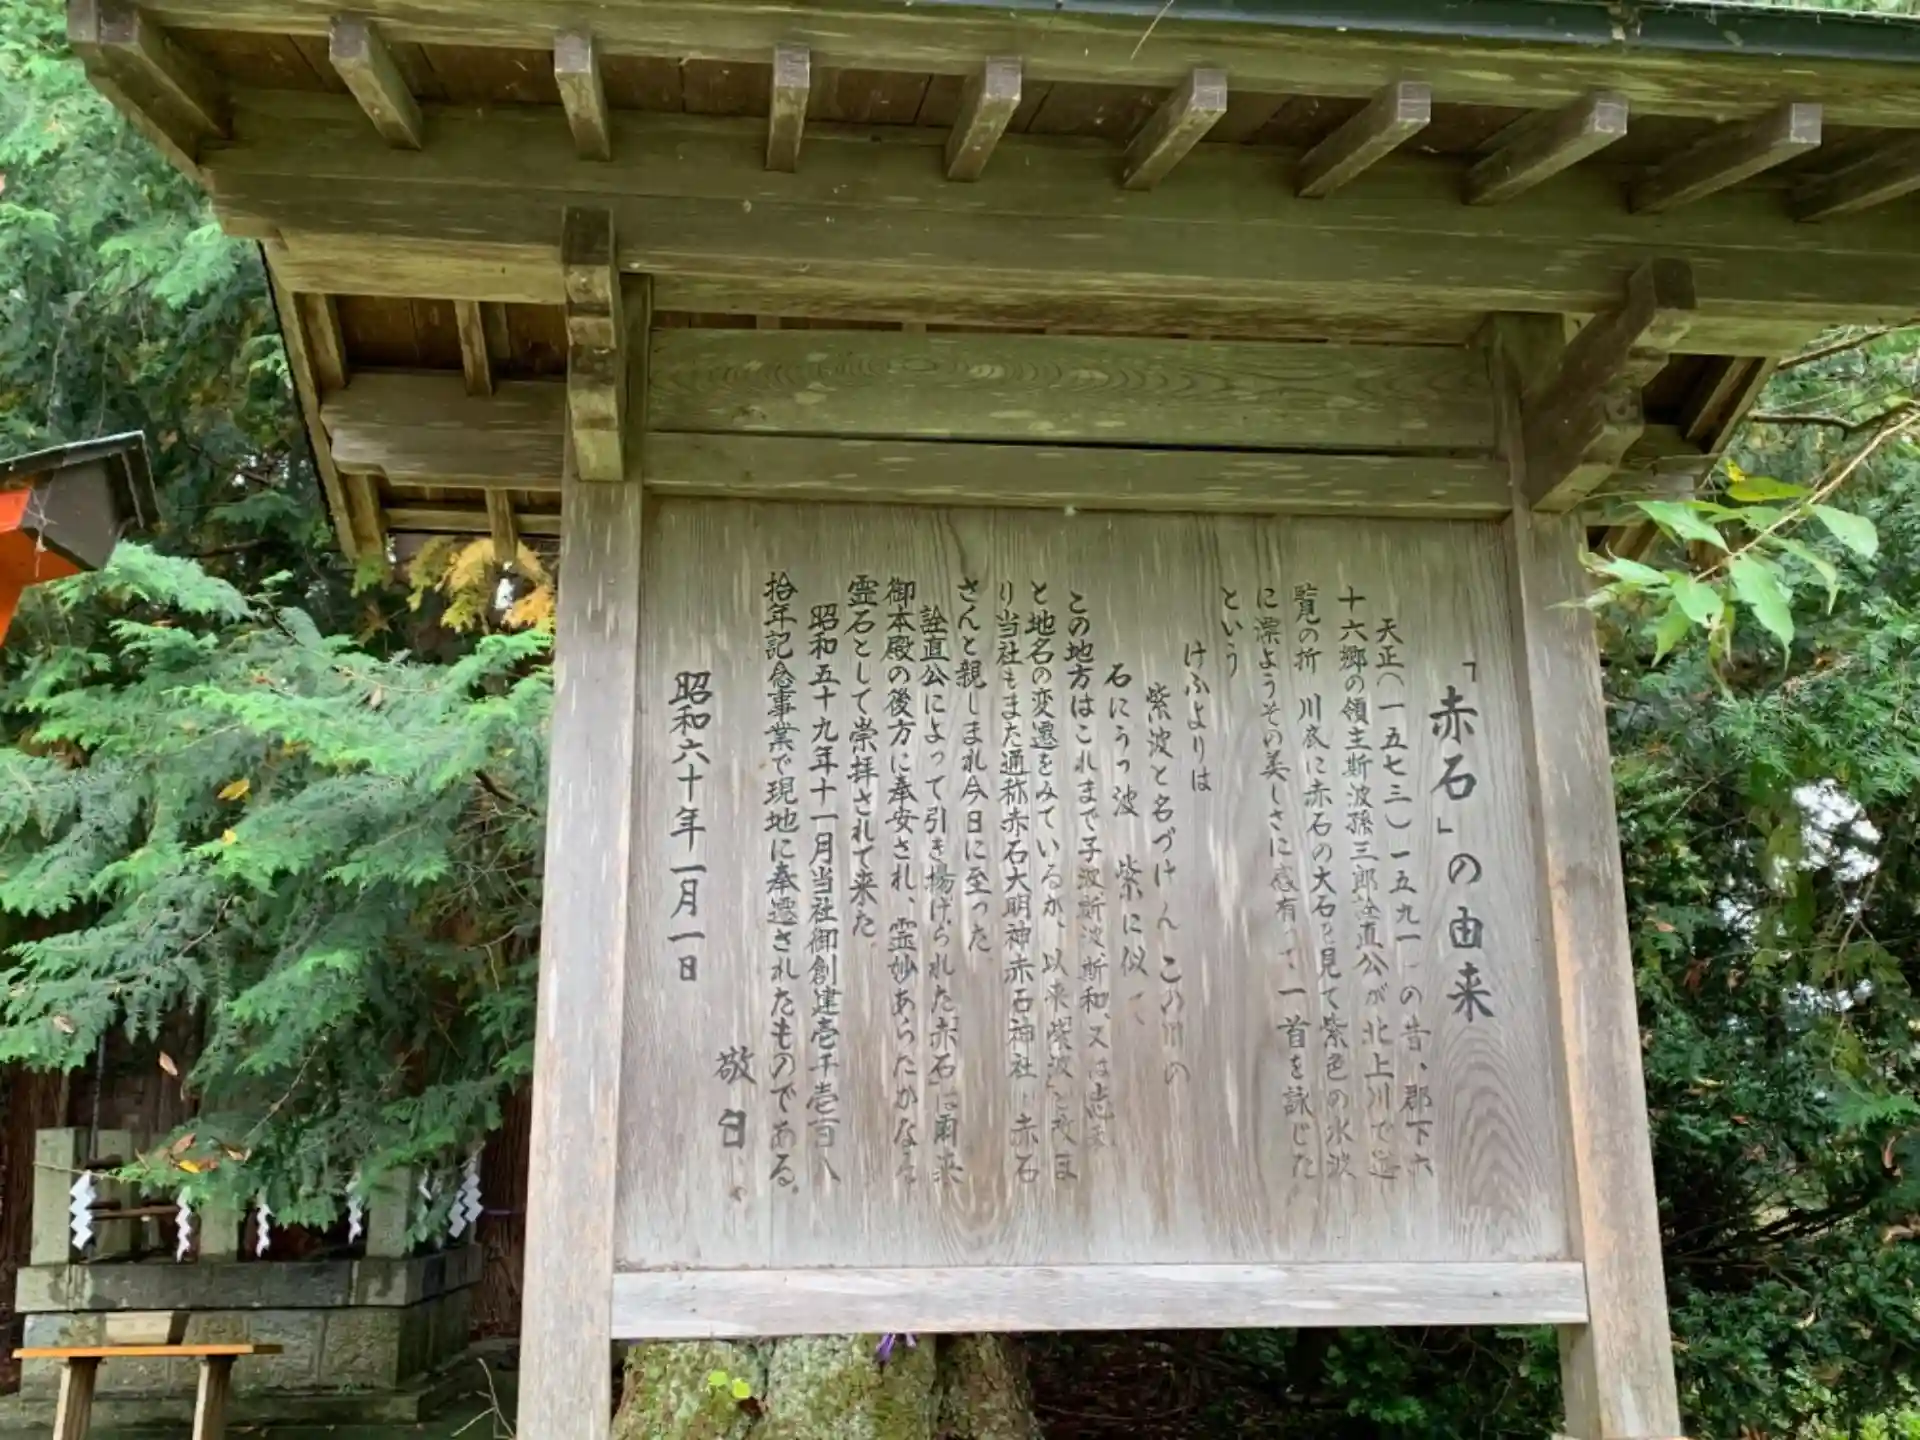 「赤石」の由来
天正(一五七三)一五九一の昔、郡下六
十六郷の領主斯波孫三郎詮直公が北上川で遊
覧の折 川底に赤石の大石を見て紫色の水波
に漂ようその美しさに感有って一首を詠じた
という
けふよりは
紫波と名づけんこの川の
石にうつ波 紫に似て
この地方はこれまで子波斯波斯和、又は志和
と地名の変遷をみているが、以来紫波と改ま
り当社もまた通称赤石大明神赤石神社 赤石
さんと親しまれ今日に至った
詮直公によって引き揚げられた「赤石」は爾来
御本殿の後方に奉安され、霊妙あらたかなる
霊石として崇拝されて来た。
昭和五十九年十一月当社御創建壱千壱百八
拾年記念事業で現地に奉遷されたものである。
敬白
昭和六十年一月一日